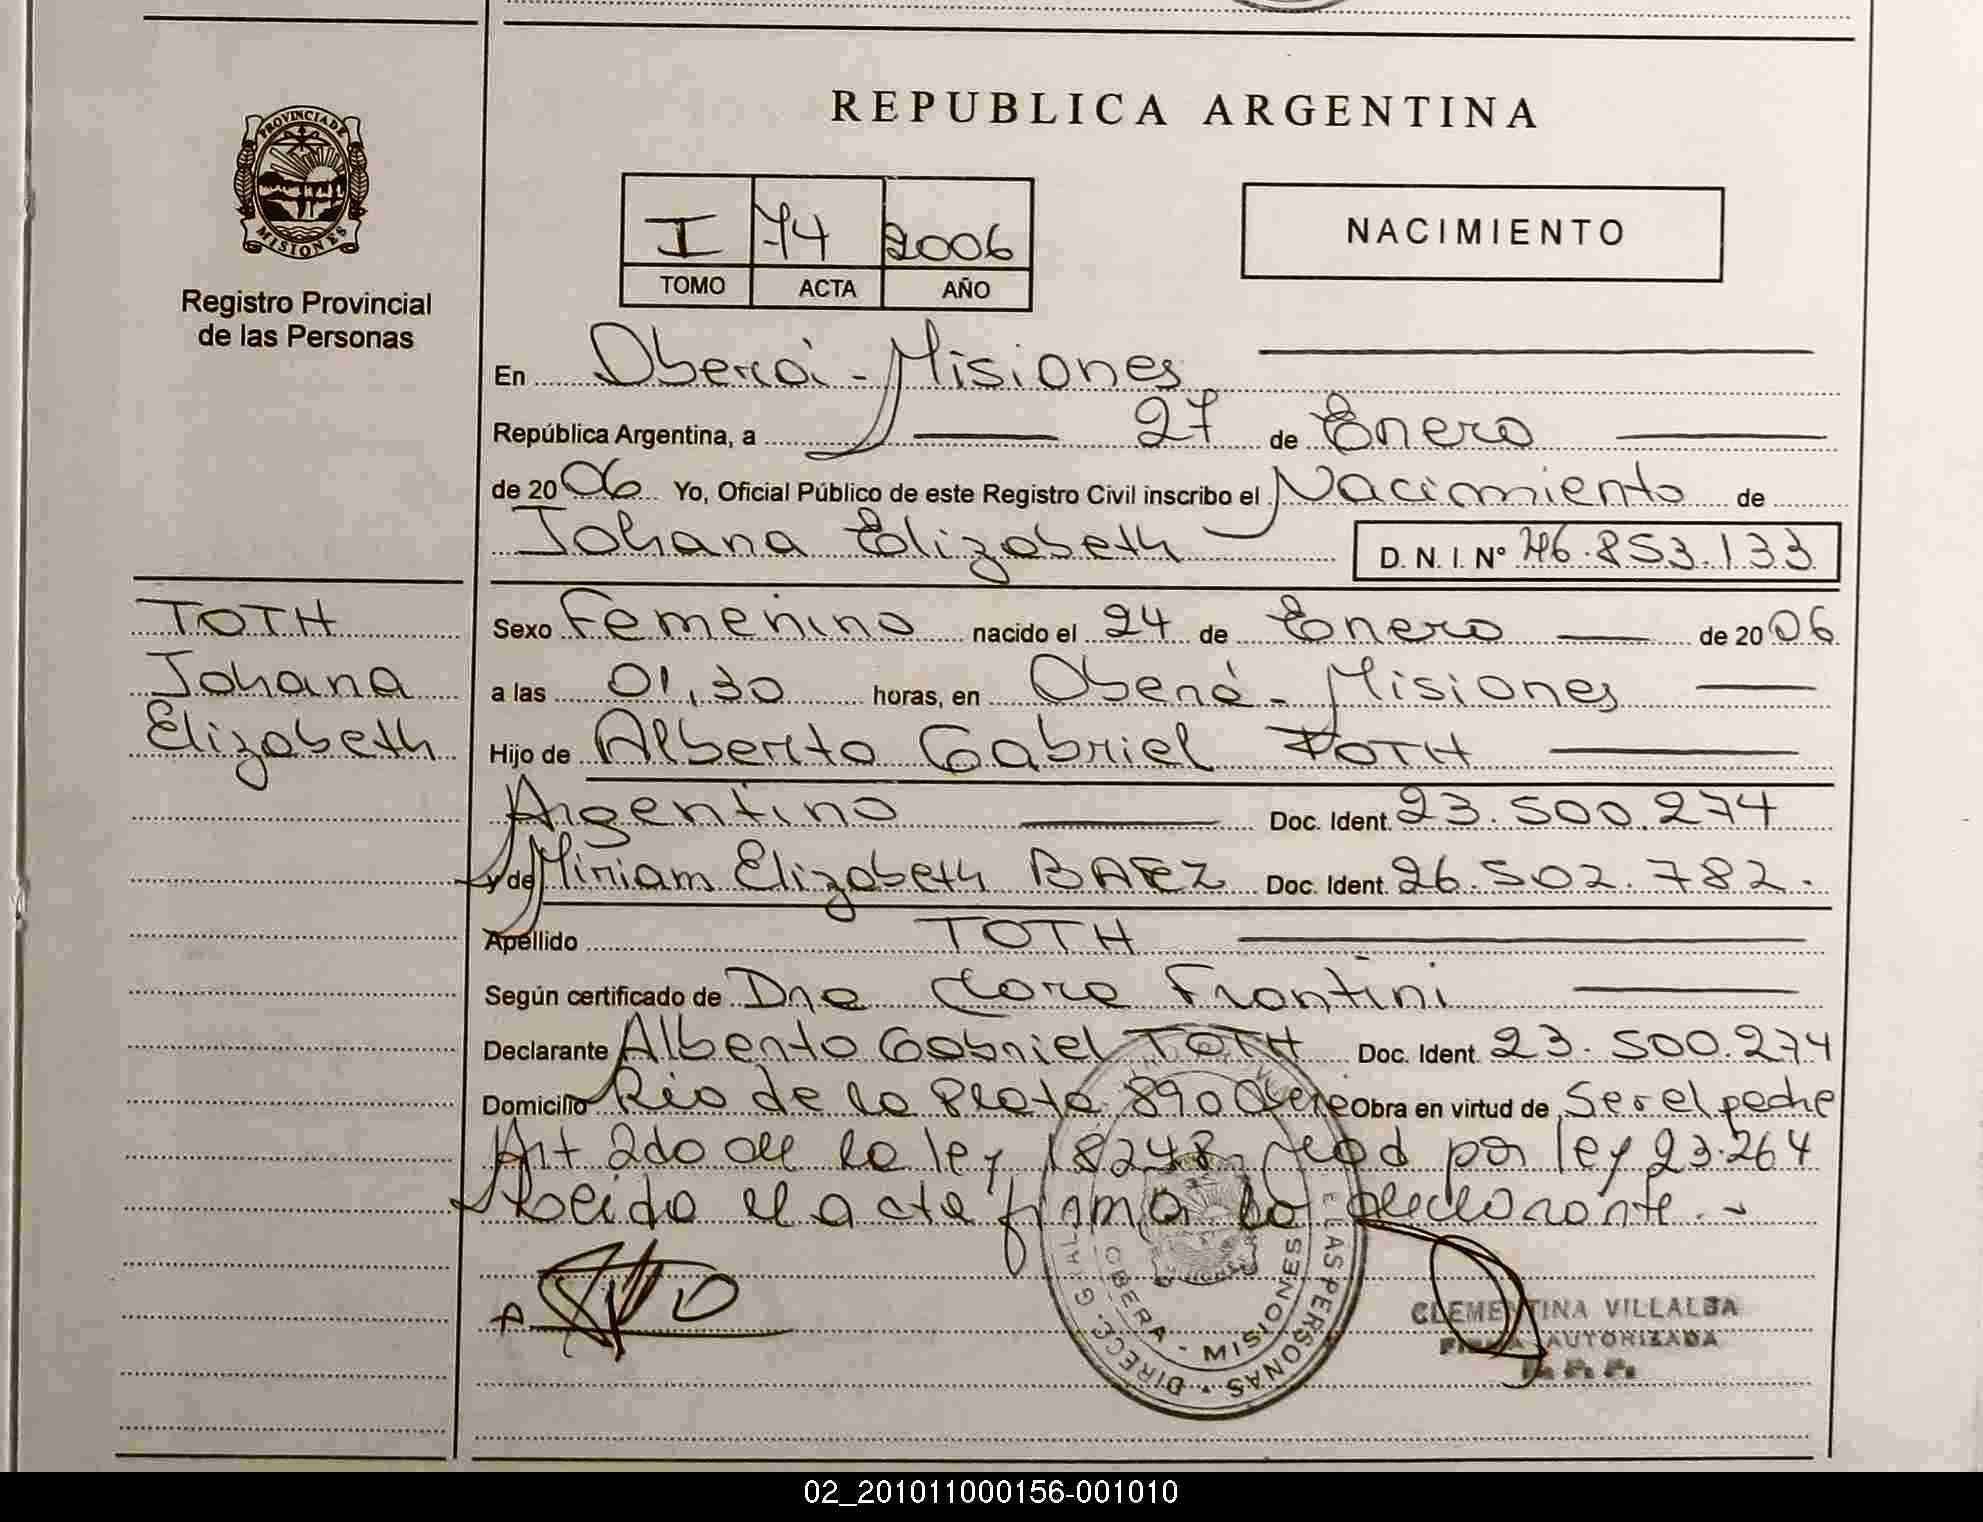 PROVINCIA DE
MISIONES
Registro Provincial
de las Personas
REPUBLICA ARGENTINA
I 74 2006
TOMO ACTA AÑO
NACIMIENTO
En Oberá - Misiones
República Argentina, a 27 de Enero
de 2006 Yo, Oficial Público de este Registro Civil inscribo el Nacimiento de
Johana Elizabeth D. N. I. Nº 46.853.133
TOTH
Johana
Elizabeth
Sexo Femenino nacido el 24 de Enero de 2006
a las 01,30 horas, en Oberá - Misiones
Hijo de Alberto Gabriel TOTH
Argentino Doc. Ident. 23.500.274
y de Miriam Elizabeth BAEZ Doc. Ident. 26.502.782.
Apellido TOTH
Según certificado de Dra Clara Frontini
Declarante Alberto Gabriel TOTH Doc. Ident. 23.500.274
Domicilio Río de la Plata 890 Obera Obra en virtud de Ser el padre
Art 2do de la ley 18248 mod por ley 23.264
Leida el acta firma la declarante.-
OBERA - MISIONES
LAS PERSONAS
CLEMENTINA VILLALBA
FIRMA AUTORIZADA
02_201011000156-001010